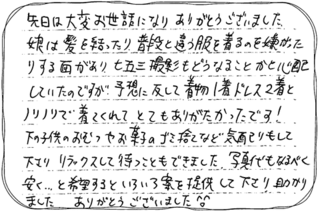 先日は大変お世話になり ありがとうございました。
娘は髪を結ったり 普段と違う服を着るのを嫌がった
りする面があり 七五三撮影もどうなることかと心配
していたのですが 予想に反して着物1着ドレス2着と
ノリノリで着てくれて とてもありがたかったです!
下の子供のおむつやお菓子のゴミ捨てなど気配りもして
下さり リラックスして待つこともできました。写真代もなるべく
安く…と希望するといろいろ案を提供して下さり 助かり
ました ありがとうございました